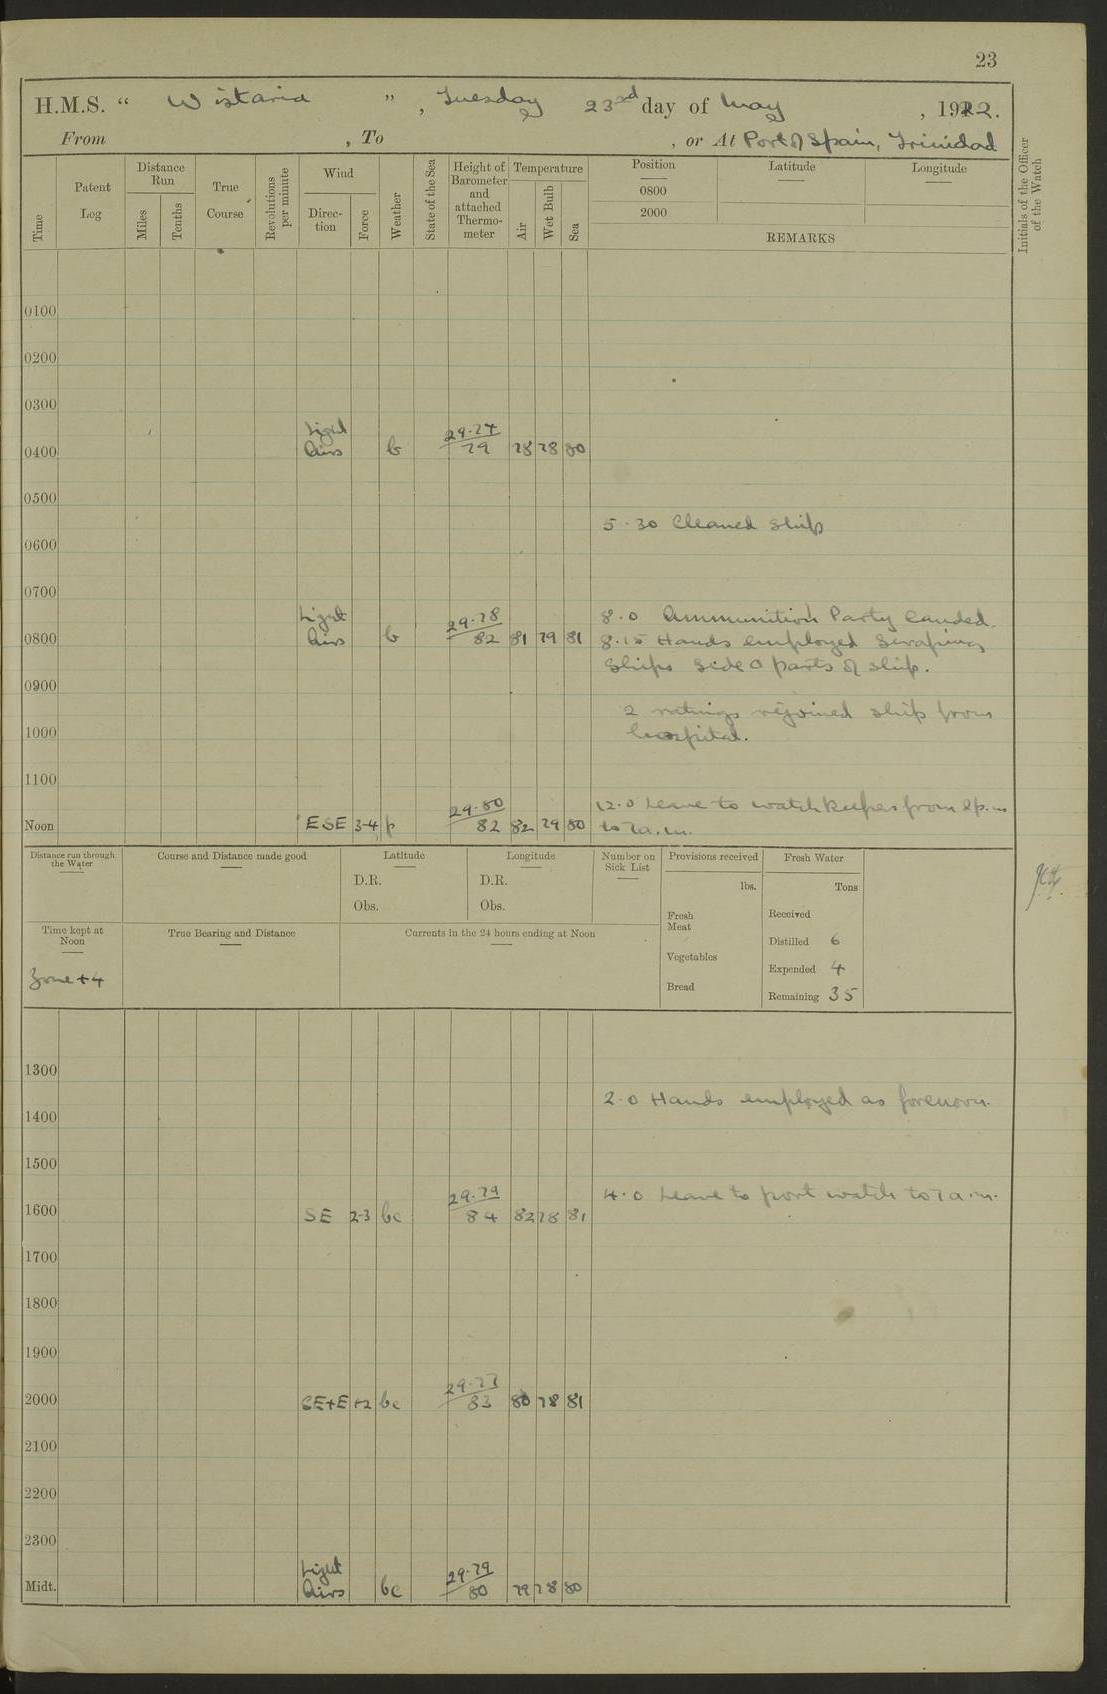 23
H.M.S. “ Wistaria ” , Tuesday 23rd day of May , 1922.
From , To , or At Port of Spain, Trinidad
Time
Patent Log
Distance Run
Miles
Tenths
True Course
Revolutions per minute
Wind
Direc-tion
Force
Weather
State of the Sea
Height of Barometer and attached Thermo-meter
Temperature
Air
Wet Bulb
Sea
Position
0800
2000
Latitude
Longitude
REMARKS
Initials of the Officer of the Watch
0100
0200
0300
Light 29.77
0400 Airs b 79 78 78 80
0500
5.30 Cleaned ship
0600
0700
Light 29.78 8.0 Ammunition Party landed.
0800 Airs b 82 81 79 81 8.15 Hands employed scraping
ships side & parts of ship.
0900
2 ratings rejoined ship from
1000 hospital.
1100
29.80 12.0 Leave to watchkeepers from 2p.m
Noon ESE 3-4 p 82 82 79 80 to 7a.m.
Distance run through the Water
Course and Distance made good
Latitude
D.R.
Obs.
Longitude
D.R.
Obs.
Number on Sick List
Provisions received
lbs.
Fresh Meat
Vegetables
Bread
Fresh Water
Tons
Received
Distilled 6
Expended 4
Remaining 35
Time kept at Noon
Zone +4
True Bearing and Distance
Currents in the 24 hours ending at Noon
1300
2.0 Hands employed as forenoon.
1400
1500
29.79 4.0 Leave to port watch to 7a.m.
1600 SE 2-3 bc 84 82 78 81
1700
1800
1900
29.77
2000 SE+E 1-2 bc 83 80 78 81
2100
2200
2300
Light 29.79
Midt. Airs bc 80 79 78 80